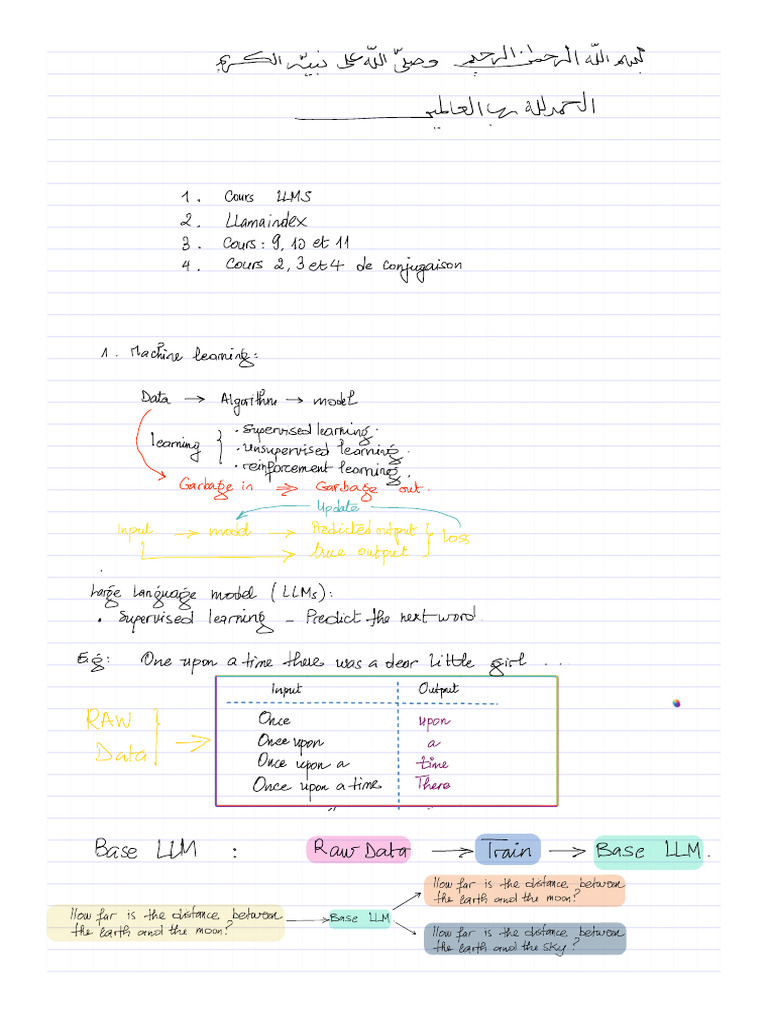 بسم الله الرحمان الرحيم وصلى الله على نبيه الكريم
الحمد لله رب العالمين
1. Cours LLMS
2. LLamaindex
3. Cours : 9, 10 et 11
4. Cours 2, 3 et 4 de conjugaison
1. Machine learning :
Data → Algorithm → model
learning { . Supervised learning.
. Unsupervised learning.
. reinforcement learning.
Garbage in ⇒ Garbage out.
Update
Input → model → Predicted output } Loss
true output
Large Language model (LLMs) :
. Supervised learning – Predict the next word
E.g : One upon a time there was a dear little girl ...
Input Output
RAW Data
Once upon
Once upon a
Once upon a time
Once upon a time There
Base LLM : Raw Data → Train → Base LLM.
How far is the distance between
the earth and the moon?
How far is the distance between
the Earth and the moon?
Base LLM
How far is the distance between
the earth and the sky?